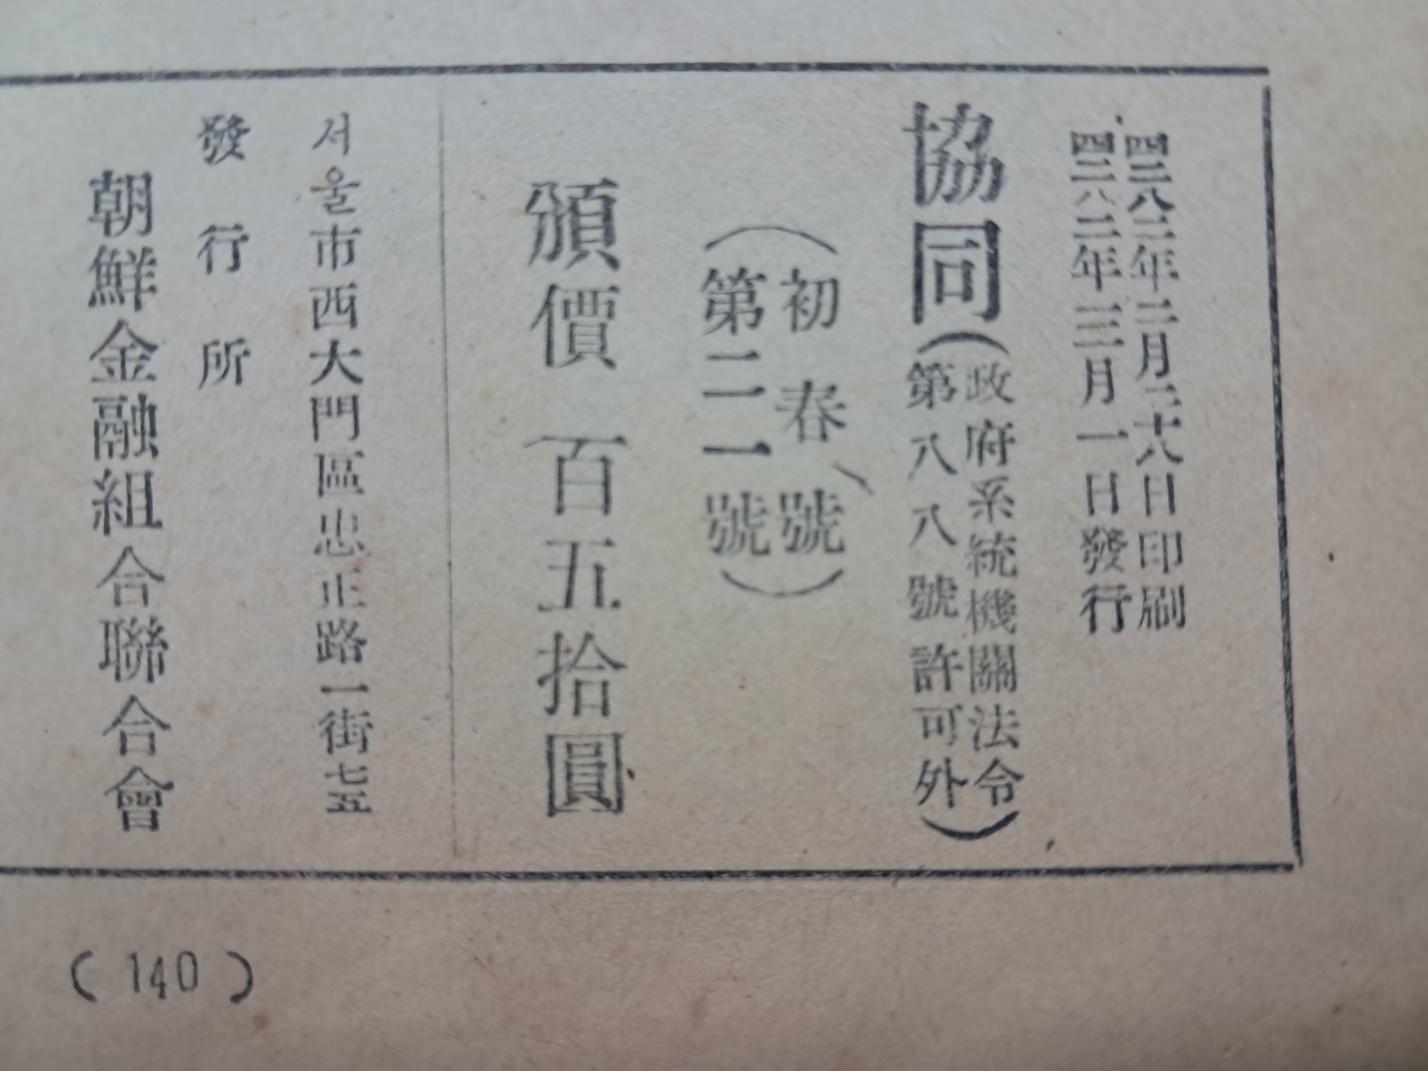 四二八二年二月二十八日印刷
四二八二年三月一日發行
協同(政府系統機關法令
第八八號許可外)
(初春號
第二一號)
頒價 百五拾圓
서울市西大門區忠正路一街七五
發行所
朝鮮金融組合聯合會
(140)